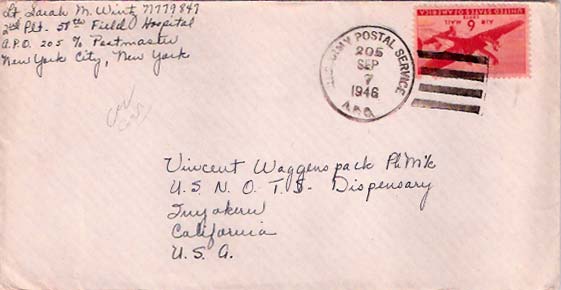 Lt. Sarah M. Wint N779847
2nd Plt. 57th Field Hospital
A.P.O. 205 % Postmaster
New York City, New York
U.S. ARMY POSTAL SERVICE
205
SEP
7
1946
A.P.O.
UNITED STATES OF AMERICA
AIR MAIL
6¢
Vincent Waggenspack PhM1/c
U.S.N.O.T.S. Dispensary
Inyokern
California
U.S.A.